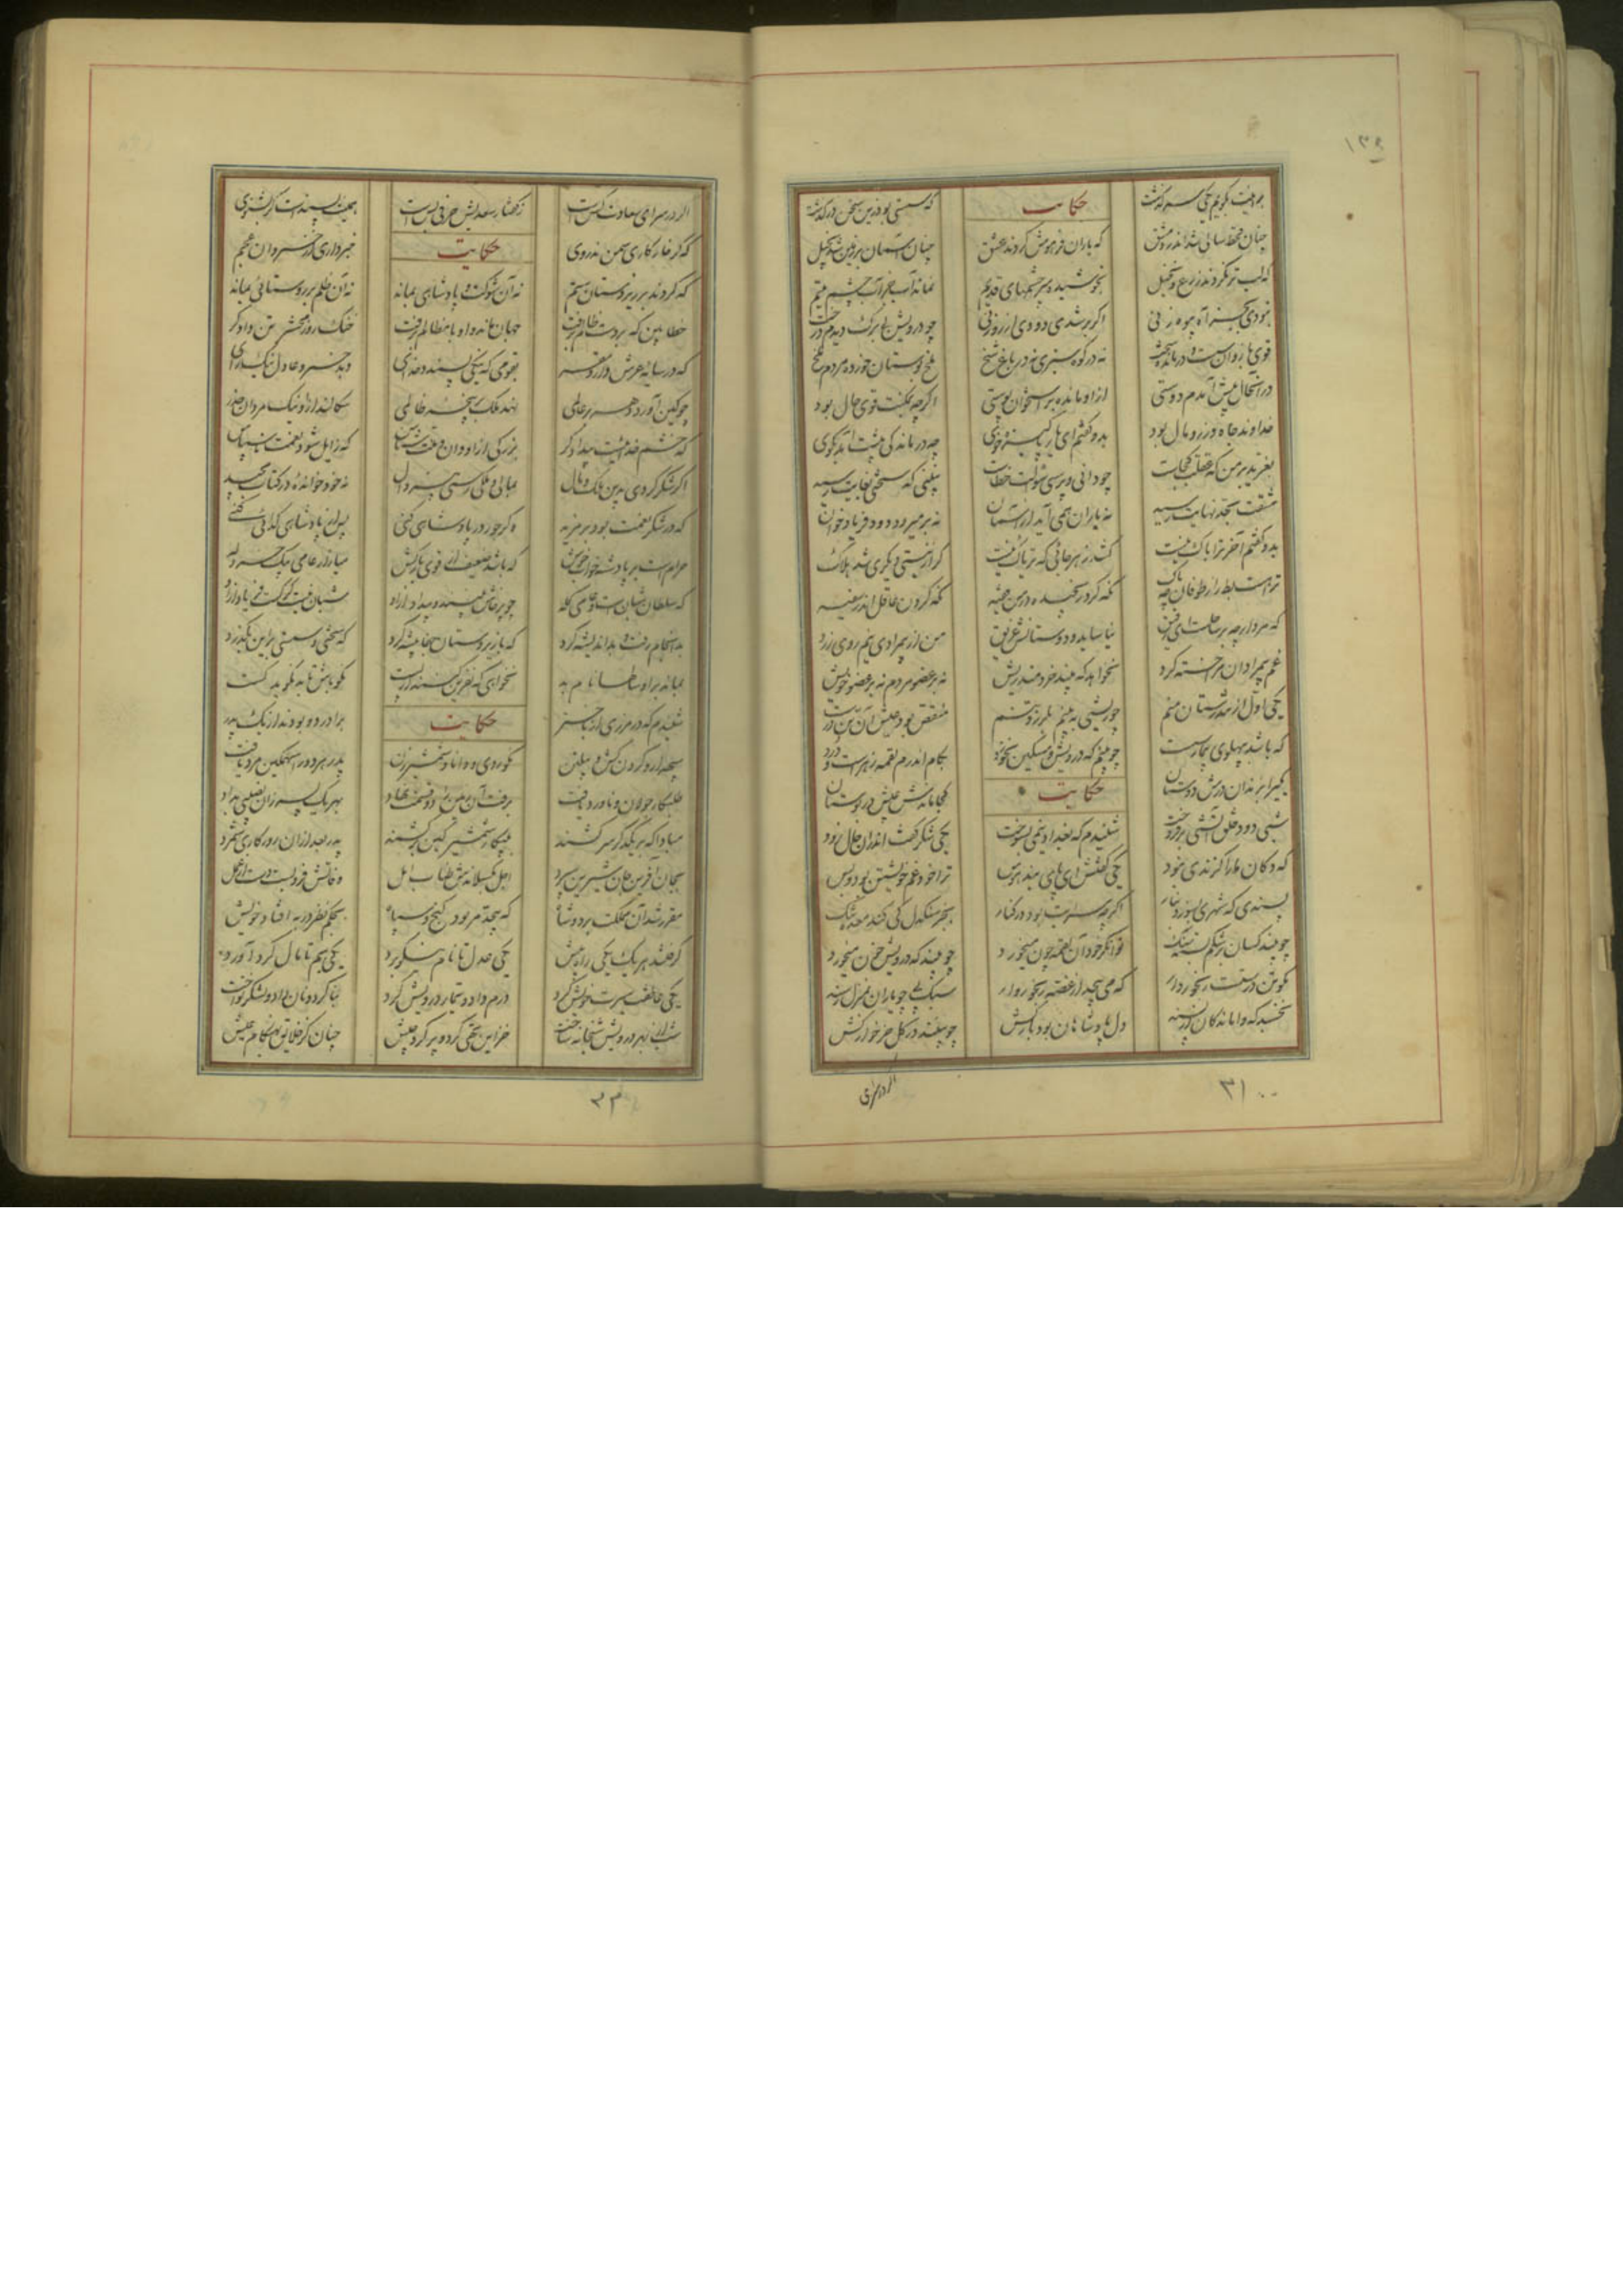 بگویم یکی سرگذشت حکایت که سستی بود زین سخن درگذشت
چنان قحط سالی شد اندر دمشق که یاران فراموش کردند عشق چنان آسمان بر زمین شد بخیل
که لب تر نکردند زرع و نخیل بخوشید سرچشمهای قدیم نماند آب جز آب چشم یتیم
نبودی بجز آه بیوه زنی اگر برشدی دودی از روزنی چو درویش بی برگ دیدم درخت
قوی بازوان سست و درمانده سخت نه در کوه سبزی نه در باغ شخ ملخ بوستان خورده مردم ملخ
در آنحال پیش آمدم دوستی ازو مانده بر استخوان پوستی اگرچه بمکنت قوی حال بود
خداوند جاه و زر و مال بود بدو گفتم ای یار پاکیزه خوی چه درماندگی پیشت آمد بگوی
بغرید بر من که عقلت کجاست چو دانی و پرسی سوالت خطاست نبینی که سختی بغایت رسید
مشقت بحد نهایت رسید نه باران همی آید از آسمان نه بر میرود دود فریاد خوان
بدو گفتم آخر ترا باک نیست کشد زهر جائی که تریاک نیست گر از نیستی دیگری شد هلاک
ترا هست بط را ز طوفان چه باک نگه کرد رنجیده در من فقیه نگه کردن عاقل اندر سفیه
که مرد ارچه بر ساحلست ای رفیق نیاساید و دوستانش غریق من از بیمرادی نیم روی زرد
غم بیمرادان مرا خسته کرد نخواهد که بیند خردمند ریش نه بر عضو مردم نه بر عضو خویش
یکی اول از تندرستان منم چو ریشی ببینم بلرزد تنم منغص بود عیش آن تن درست
که باشد بپهلوی بیمار سست چو بینم که درویش مسکین نخورد بکام اندرم لقمه زهرست و درد
یکی را بزندان درش دوستان حکایت کجا ماندش عیش در بوستان
شبی دود خلق آتشی برفروخت شنیدم که بغداد نیمی بسوخت یکی شکر گفت اندران حال زود
که دکان ما را گزندی نبود یکی گفتش ای هوس ترا خود غم خویشتن بود و بس
پسندی که شهری بسوزد بنار اگرچه سرایت بود درکنار بجز سنگدل کی کند معده تنگ
چو بیند کسان بر شکم بسته سنگ توانگر خود آن لقمه چون میخورد چو بیند که درویش خون میخورد
مگو تن درستست رنجوردار که می پیچد از غصه رنجوروار سبک پی چو یاران بمنزل رسند
نخسبد که واماندگان از پسند دل پادشاهان بود بارکش چو بینند در گل خر خارکش
اگر در سرای
۳۱
اگر در سرای سعادت کس است ز گفتار سعدیش حرفی بس است همینت پسندست اگر بشنوی
که گر خار کاری سمن ندروی حکایت خبر داری از خسروان عجم
که کردند بر زیردستان ستم نه آن شوکت و پادشاهی بماند نه آن ظلم بر روستائی بماند
خطا بین که بر دست ظالم برفت جهان ماند و او با مظالم برفت خنک روز محشر تن دادگر
که در سایه عرش دارد مقر بقومی که نیکی پسندد خدای دهد خسرو عادل نیک رای
چو کین آورد بر عالمی نهد ملک در پنجه ظالمی سگالند ازو نیک مردان حذر
که خشم خدائیست بیدادگر بزرگی ازو دان و منت شناس که زایل شود نعمت ناسپاس
اگر شکر کردی بدین ملک و مال بمالی و ملکی رسی بی زوال نه خود خوانده در کتاب مجید
که در شکر نعمت بود بر مزید وگر جور در پادشاهی کنی پس از پادشاهی گدائی کنی
حرامست بر پادشه خواب خوش که باشد ضعیف از قوی بارکش میازار عامی بیک خردله
که سلطان شبان است و عامی گله چو پرخاش بینند و بیداد ازو شبان نیست گرگست فریاد ازو
بد انجام رفت و بد اندیشه کرد که با زیردستان جفا پیشه کرد که سختی و سستی برین بگذرد
بماند برو سالها نام بد نخواهی که نفرین کنند از پست نکو باش تا بد نگوید کست
شنیدم که در مرزی از باختر حکایت برادر دو بودند از یک پدر
سپهدار و گردن کش و پیلتن نکو روی و دانا و شمشیرزن پدر هر دو را سهمگین مرد یافت
طلبکار جولان و ناورد یافت برفت آن زمین را دو قسمت نهاد بهر یک پسر زان نصیبی بداد
مبادا که بر یکدگر سر کشند بپیکار شمشیر کین برکشند پدر بعد ازان روزگاری شمرد
بجان آفرین جان شیرین سپرد اجل بگسلاندش طناب امل وفاتش فرو بست دست از عمل
مقرر شد آن مملکت بر دو شاه که بیحد و مر بود گنج و سپاه بحکم نظر در به افتاد خویش
گرفتند هر یک یکی راه پیش یکی عدل تا نام نیکو برد یکی ظلم تا مال گرد آورد
یکی عاطفت سیرت خویش کرد درم داد و تیمار درویش کرد بنا کرد و نان داد و لشکر نواخت
شب از بهر درویش شبخانه ساخت خزاین تهی کرد و پر کرد جیش چنان کز خلایق بهنگام عیش